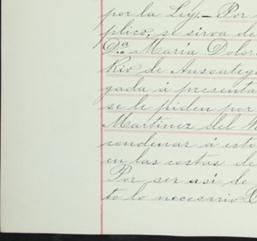 por la Ley.– Por
plico, se sirva de
D.ª Maria Dolor
Rio de Ansoateg
gada á presenta
se le piden por
Martinez del R
condenar á esto
en las costas de
Por ser asi de
to lo necesario